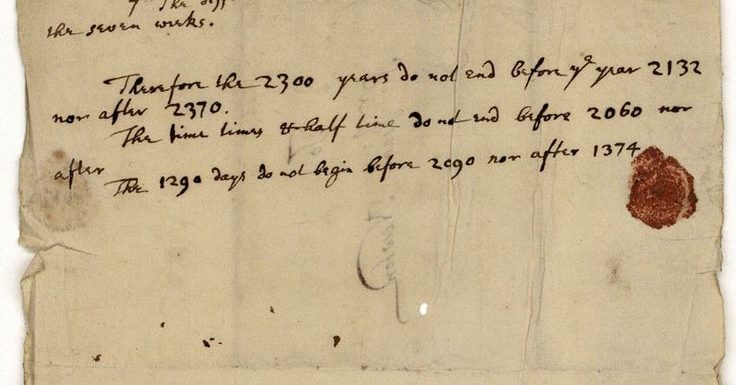 7th The
the seven weeks.
Therefore the 2300 years do not end before ye year 2132
nor after 2370.
The time times & half time do not end before 2060 nor
after
The 1290 days do not begin before 2090 nor after 1374